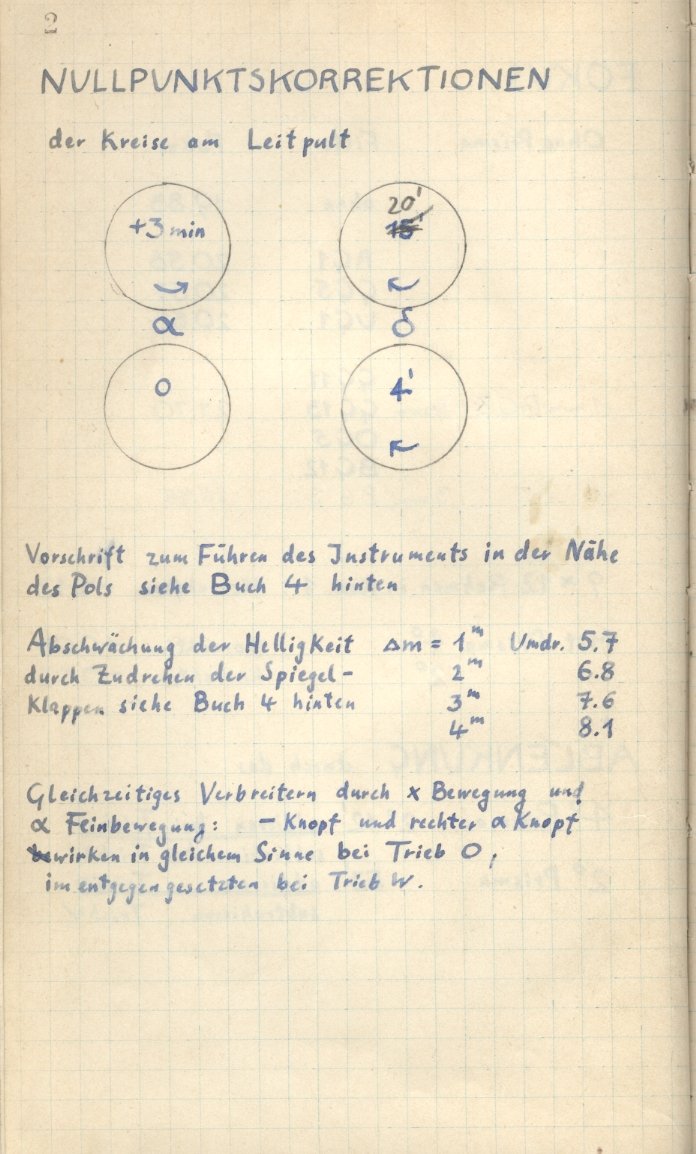 2
NULLPUNKTSKORREKTIONEN
der Kreise am Leitpult
+3 min
20'
15'
α
δ
0
4'
Vorschrift zum Führen des Instruments in der Nähe
des Pols siehe Buch 4 hinten
Abschwächung der Helligkeit Δm = 1ᵐ Umdr. 5.7
durch Zudrehen der Spiegel- 2ᵐ 6.8
Klappen siehe Buch 4 hinten 3ᵐ 7.6
4ᵐ 8.1
Gleichzeitiges Verbreitern durch x Bewegung und
α Feinbewegung: – Knopf und rechter α Knopf
wirken in gleichem Sinne bei Trieb O,
im entgegengesetzten bei Trieb W.